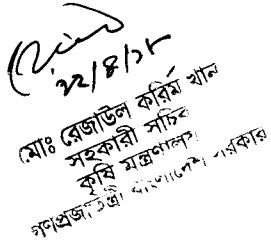 ২২/৪/১৮
মোঃ রেজাউল করিম খান
সহকারী সচিব
কৃষি মন্ত্রণালয়
গণপ্রজাতন্ত্রী বাংলাদেশ সরকার